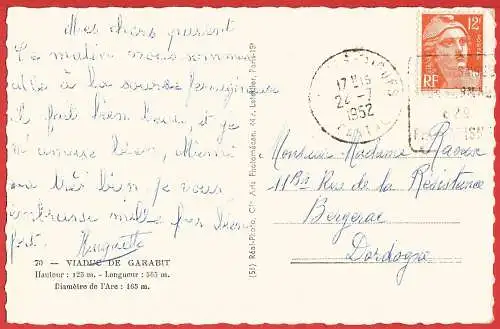 Mes chers parent
Ce matin nous sommes
allé à la source ferrugineuse
il fait bien beau, et je
m'amuse bien,
va très bien, je vous
embrasse mille fois bien
fort. Huguette
70 — VIADUC DE GARABIT
Hauteur : 123 m. - Longueur : 565 m.
Diamètre de l'Arc : 165 m.
(51) Réal-Photo, Cie Arts Photoméca., 44, r. Letellier, Paris-15e
17 H15
24-7
1952
CANTAL
12F
RF
Monsieur Madame
11 Bis Rue de la Résistance
Bergerac
Dordogne